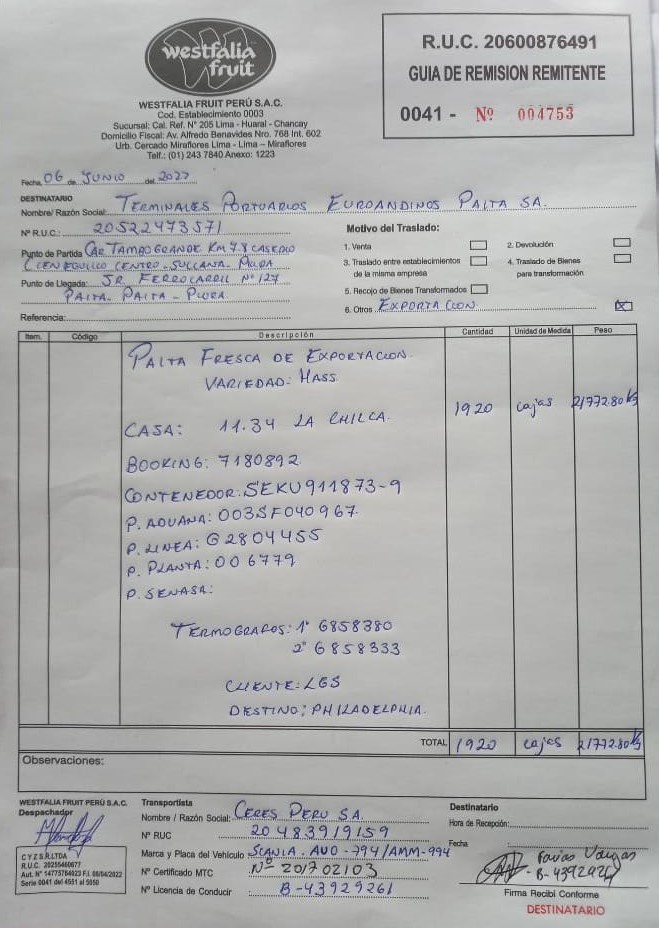 westfalia
fruit
WESTFALIA FRUIT PERÚ S.A.C.
Cod. Establecimiento 0003
Sucursal: Cal. Ref. N° 205 Lima - Huaral - Chancay
Domicilio Fiscal: Av. Alfredo Benavides Nro. 768 Int. 602
Urb. Cercado Miraflores Lima - Lima - Miraflores
Telf.: (01) 243 7840 Anexo: 1223
R.U.C. 20600876491
GUIA DE REMISION REMITENTE
0041 - Nº 004753
Fecha, 06 de JUNIO del 2022
DESTINATARIO
Nombre/ Razón Social: TERMINALES PORTUARIOS EUROANDINOS PAITA SA.
N° R.U.C.: 20522473571
Punto de Partida CAR. TAMBOGRANDE KM 7.8 CASERIO
CIENEGUILLO CENTRO - SULLANA - PIURA
Punto de Llegada: JR FERROCARRIL Nº 127
PAITA - PAITA - PIURA
Referencia:
Motivo del Traslado:
1. Venta
2. Devolución
3. Traslado entre establecimientos de la misma empresa
4. Traslado de Bienes para transformación
5. Recojo de Bienes Transformados
6. Otros EXPORTACION X
Item. Código Descripción Cantidad Unidad de Medida Peso
PALTA FRESCA DE EXPORTACION
VARIEDAD: HASS
CAJA: 11.34 LA CHILCA. 1920 cajas 21772.80 kg
BOOKING: 7180892
CONTENEDOR: SEKU911873-9
P. ADUANA: 003SF040967
P. LINEA: G2804455
P. PLANTA: 006779
P. SENASA:
TERMOGRAFOS: 1° G858380
2° G858333
CLIENTE: LGS
DESTINO: PHILADELPHIA.
TOTAL 1920 cajas 21772.80 kg
Observaciones:
WESTFALIA FRUIT PERÚ S.A.C.
Despachador
CYZ S.R.LTDA
R.U.C. 20255460677
Aut. N° 14775784823 F.I. 08/04/2022
Serie 0041 del 4551 al 5050
Transportista
Nombre / Razón Social: CERES PERU SA.
N° RUC 20483919159
Marca y Placa del Vehículo SCANIA. AUO-794/AMM-994
N° Certificado MTC Nº 201702103
N° Licencia de Conducir B-43929261
Destinatario
Hora de Recepción:
Fecha
Farias Vargas
Firma Recibi Conforme
DESTINATARIO